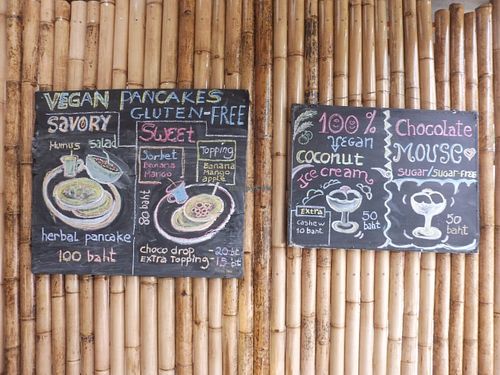 VEGAN PANCAKES
GLUTEN-FREE
SAVORY
Humus salad
herbal pancake
100 baht
SWEET
Sorbet
banana
Mango
Topping
Banana
Mango
apple
80 baht
choco drop - 20 bt
Extra topping - 15 bt
100%
vegan
coconut
Ice cream
Extra
cashew
10 baht
50
baht
Chocolate
MOUSE
SUGAR/SUGAR-FREE
50
baht